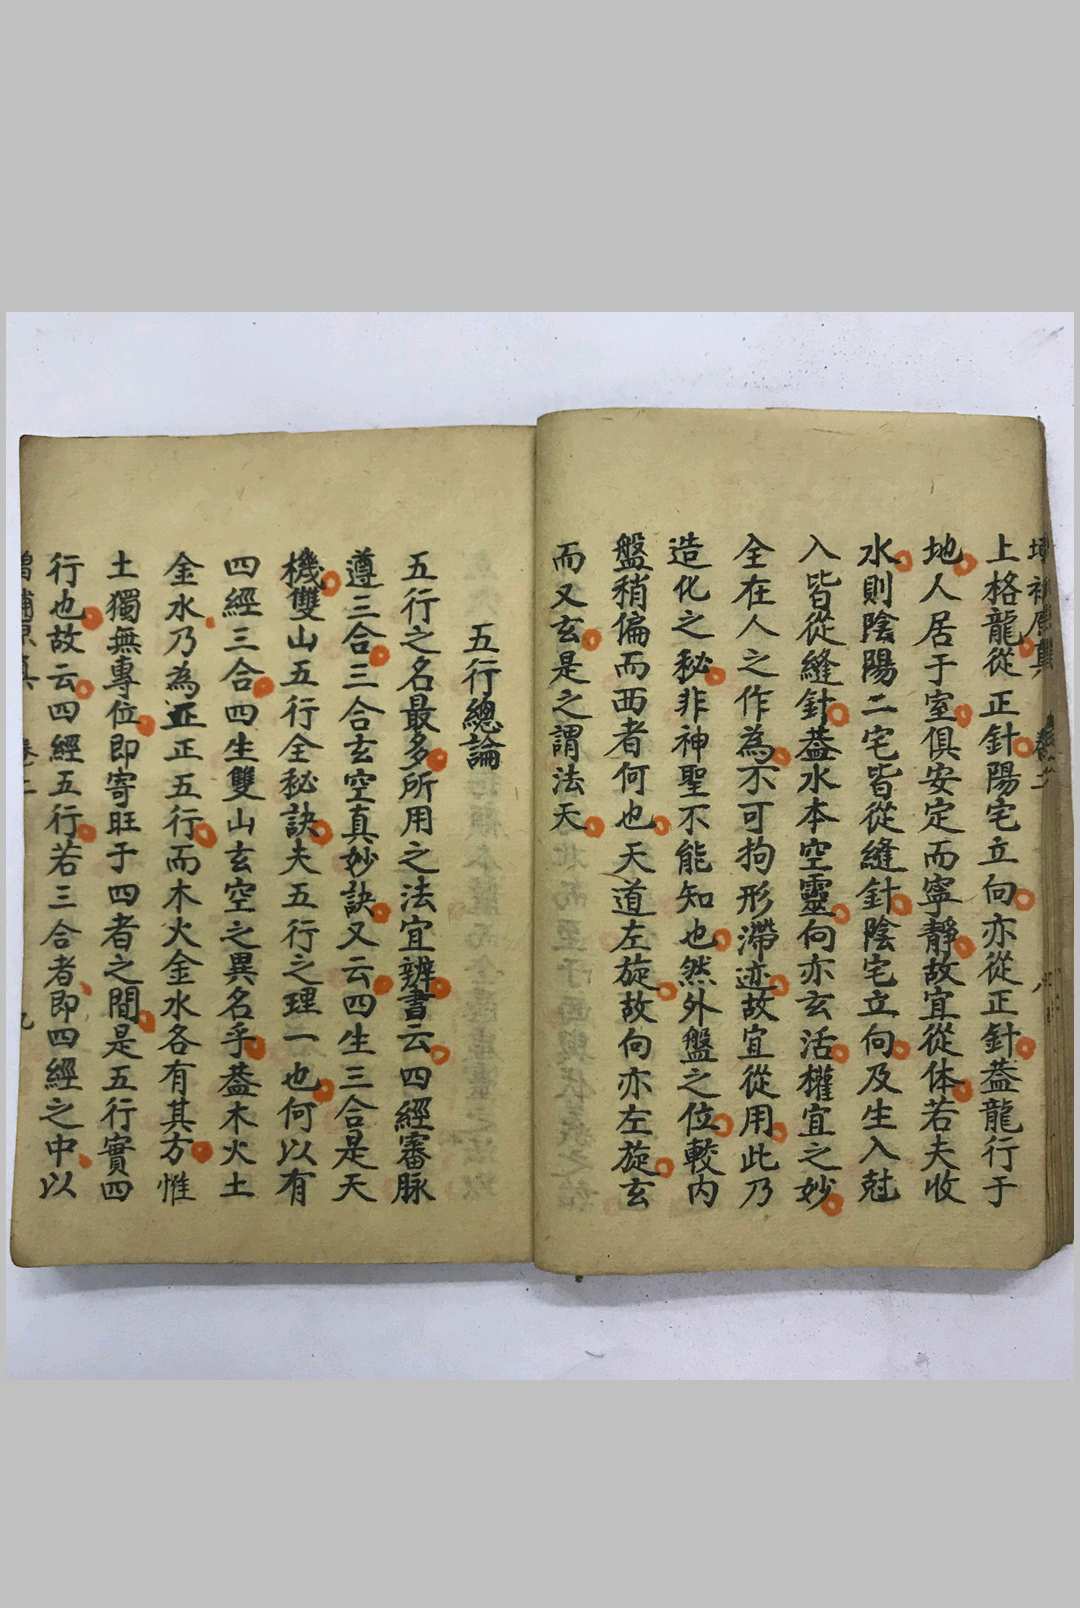 上格龍從正針陽宅立向亦從正針葢龍行于
地人居于室俱安定而寧靜故宜從体若夫收
水則陰陽二宅皆從縫針陰宅立向及生入尅
入皆從縫針葢水本空靈向亦玄活權宜之妙
全在人之作為不可拘形滯迹故宜從用此乃
造化之秘非神聖不能知也然外盤之位較內
盤稍偏而西者何也天道左旋故向亦左旋玄
而又玄是之謂法天
五行總論
五行之名最多所用之法宜辨書云四經審脉
遵三合三合玄空真妙訣又云四生三合是天
機雙山五行全秘訣夫五行之理一也何以有
四經三合四生雙山玄空之異名乎葢木火土
金水乃為正正五行而木火金水各有其方惟
土獨無專位即寄旺于四者之間是五行實四
行也故云四經五行若三合者即四經之中以